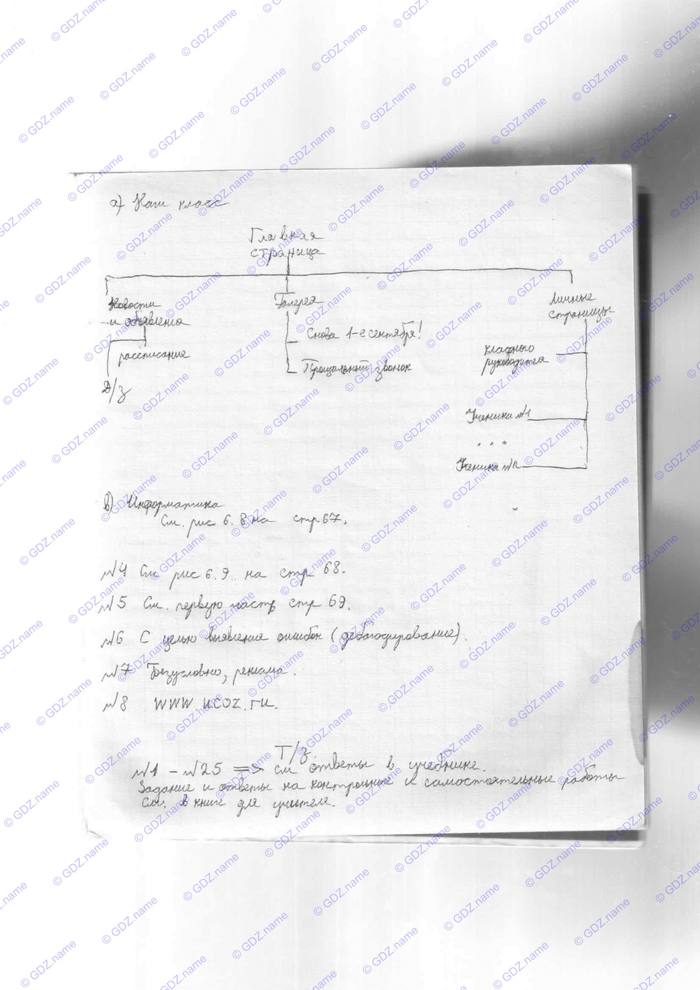 а) Наш класс
Главная
страница
Новости
и объявления
рассписание
Д/з
Галерея
Снова 1-е сентября!
Прощальный звонок
Личные
страницы
классного
руководителя
Ученика №1
...
Ученика №n
в) Информатика
См. рис 6.8 на стр 67.
№4 См рис 6.9. на стр 68.
№5 См. первую часть стр 69.
№6 С целью выявления ошибок (дебагодирование).
№7 Безусловно, реклама.
№8 www.ucoz.ru.
Т/з.
№1 - №25 => см ответы в учебнике.
Задание и ответы на контрольные и самостоятельные работы
См. в книге для учителя.
© GDZ.name